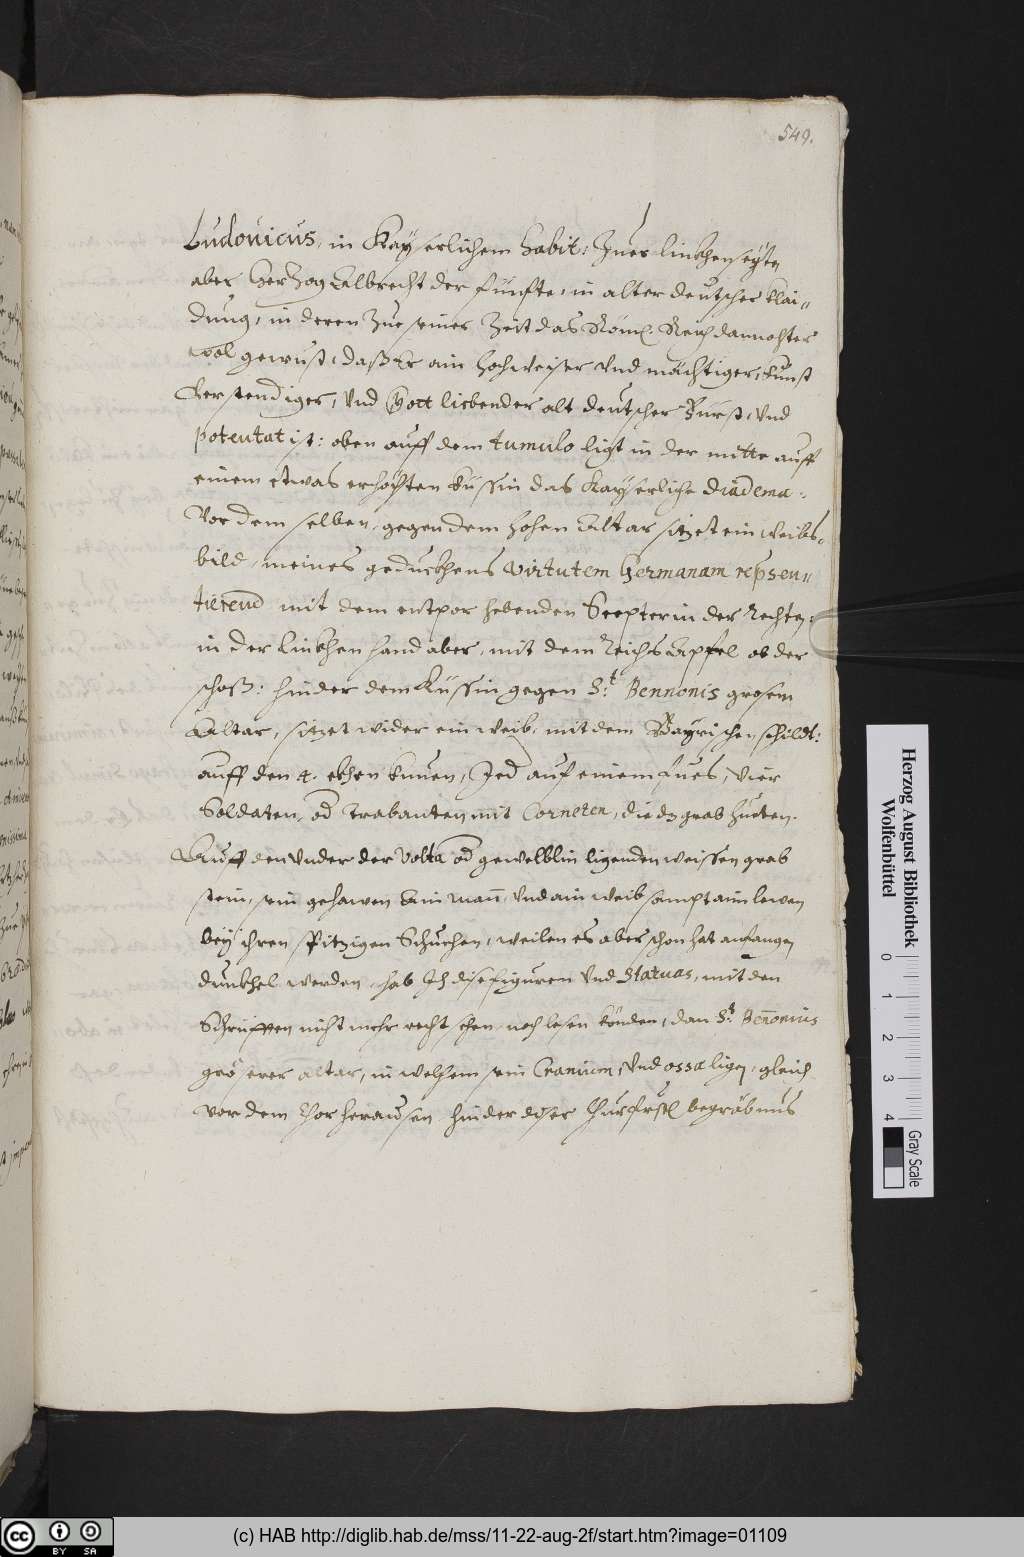 549.
Ludouicus, in Kayserlichem habit: Zuer linkhen seyten
aber Herzog Albrecht der fünfte, in alter deutscher klai=
dung, in deren Zue seiner Zeit das Röm: Reich dannohter
wol gewust, daß Er ain hochweiser vnd mächtiger, kunst
Verstendiger, vnd Gott liebender alt deutscher Fürst, vnd
potentat ist: oben auff dem tumulo ligt in der mitte auff
einem etwas erhöchten kussin das Kayserliche diadema:
Vor dem selben, gegen dem hohen Altar sitzet ein weibs=
bild, meines geduckhens virtutem Germanam repsen=
tierend mit dem entpor hebenden Scepter in der Rechten:
in der linkhen hand aber, mit dem Reichs Apfel ob der
schoß: hinder dem Küssin gegen St: Bennonis grosem
Altar, sitzet wider ein weib, mit dem Bayrischen schildt:
auff den 4. ekhen knuen, Jed auf einem fues, vier
Soldaten, od trabanten mit Corneten, die dz grab hueten.
Auff den vnder der Volta od gewelblin ligenden weissen grab
stein, sein gehawen Ain man, vnd ain weib sampt aim lewen
bey ihren spitzigen Schuchen, weilen es aber schon hat anfangen
dunkhel werden, hab Ich dise figuren vnd statuas, mit den
Schrifften nicht mehr recht sehen, noch lesen könden, dan St: Bennonius
grösserer altar, in welchem sein Cranium, vnd ossa ligen, gleich
vor dem Chor heraussen hinder diser Churfrstl begräbnus
Herzog August Bibliothek
Wolfenbüttel
0 1 2 3 4
Gray Scale
cc BY SA
(c) HAB http://diglib.hab.de/mss/11-22-aug-2f/start.htm?image=01109